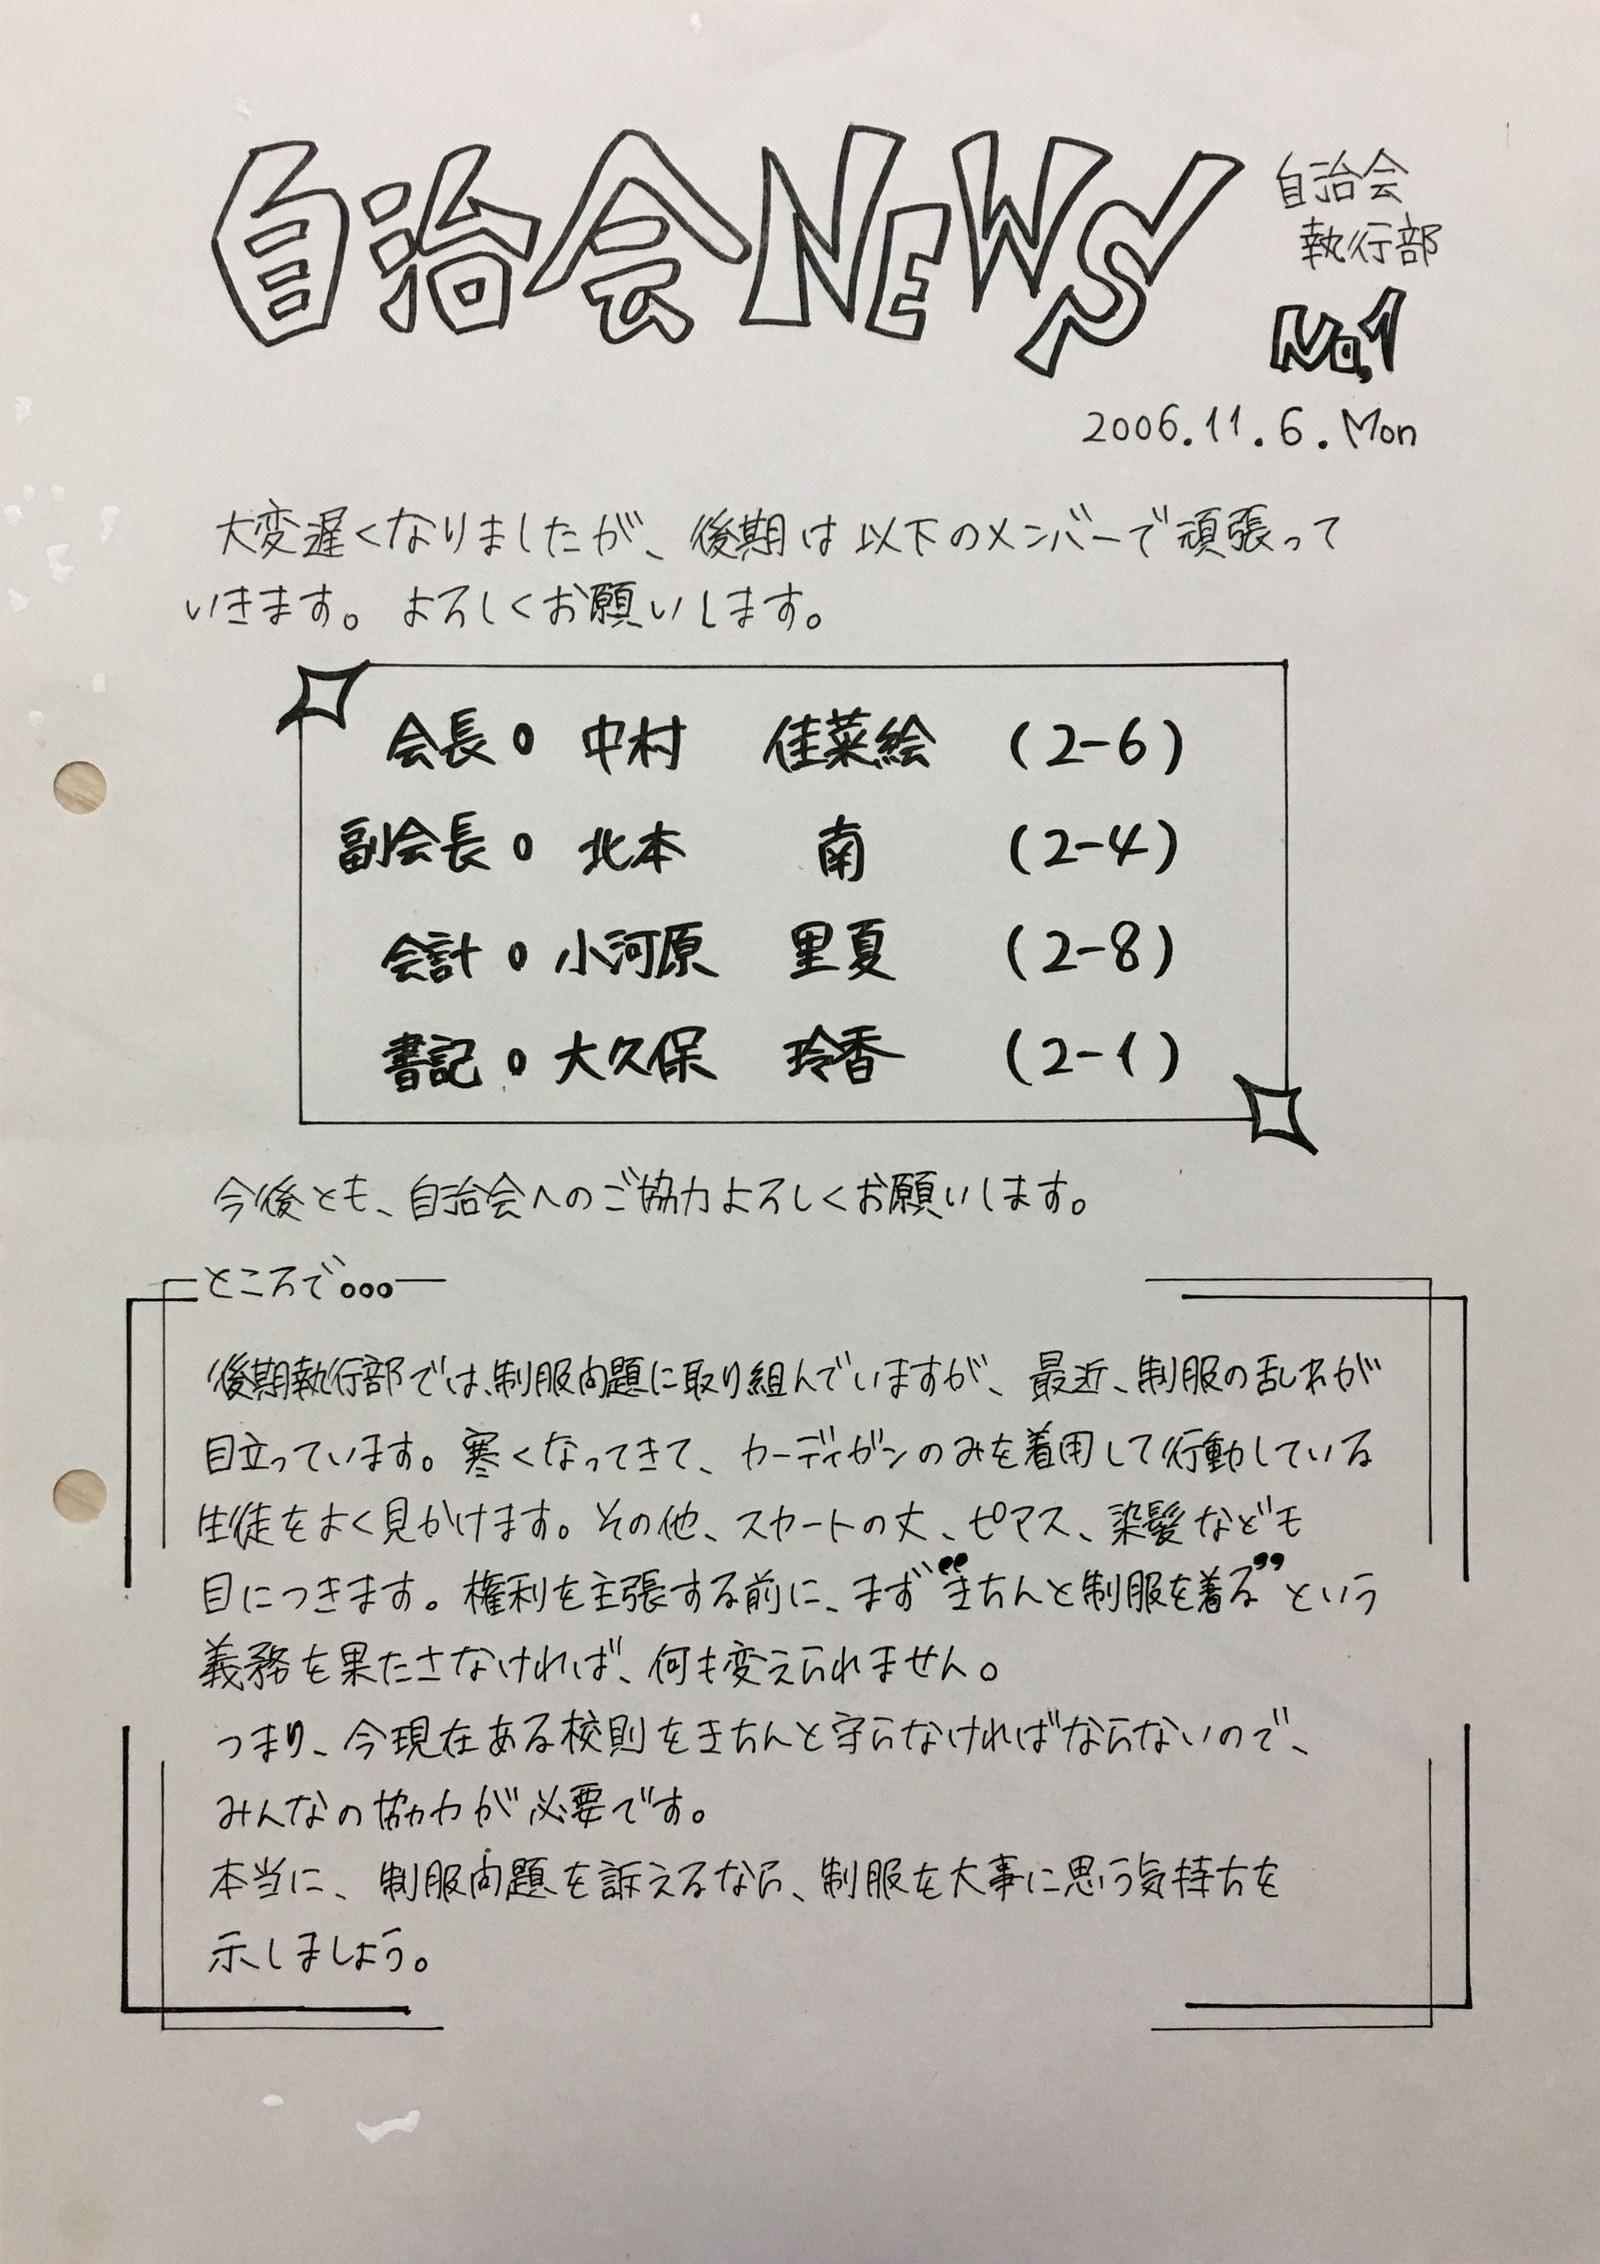 自治会NEWS
自治会
執行部
No.1
2006.11.6.Mon
大変遅くなりましたが、後期は以下のメンバーで頑張って
いきます。よろしくお願いします。
会長。中村 佳菜絵 (2-6)
副会長。北本 南 (2-4)
会計。小河原 里夏 (2-8)
書記。大久保 玲香 (2-1)
今後とも、自治会へのご協力よろしくお願いします。
ところで。。。
後期執行部では、制服問題に取り組んでいますが、最近、制服の乱れが
目立っています。寒くなってきて、カーディガンのみを着用して行動している
生徒をよく見かけます。その他、スカートの丈、ピアス、染髪なども
目につきます。権利を主張する前に、まず“きちんと制服を着る”という
義務を果たさなければ、何も変えられません。
つまり、今現在ある校則をきちんと守らなければならないので、
みんなの協力が必要です。
本当に、制服問題を訴えるなら、制服を大事に思う気持ちを
示しましょう。